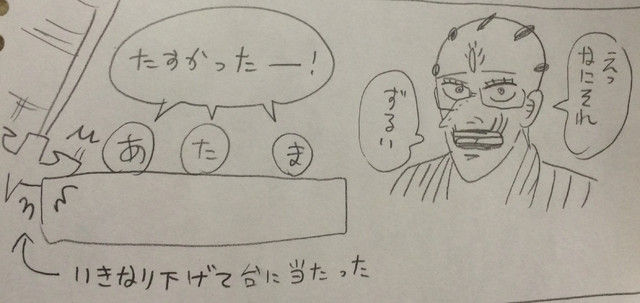 たすかったー!
あ
た
ま
いきなり下げて台に当たった
えっ
なにそれ
ずるい